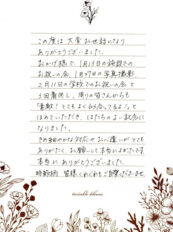 この度は大変お世話になり
ありがとうございました。
おかげ様で、1月13日の施設での
お祝いの会、1月27日の写真撮影、
2月11日の学校でのお祝いの会と
3回着用し、周りの皆さんからも
「素敵！とてもよく似合ってるよ」と
ほめていただき、はたちのよい記念に
なりました。
きめ細やかな対応やお心遣いがとても
ありがたく、お願いして本当によかったです
本当にありがとうございました。
時節柄、皆様くれぐれもご自愛くださいませ
twinkle blume